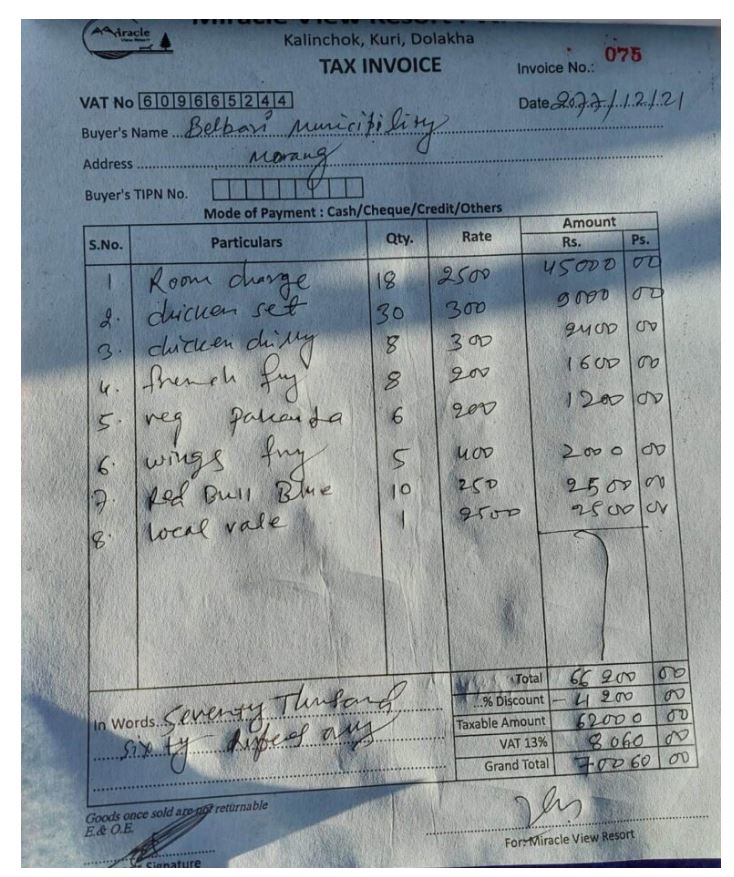 Miracle
View Resort
Miracle View Resort
Kalinchok, Kuri, Dolakha
TAX INVOICE
Invoice No.: 075
VAT No 609665244
Date 2077/12/21
Buyer's Name Belbari Municipility
Address Morang
Buyer's TIPN No.
Mode of Payment : Cash/Cheque/Credit/Others
S.No. Particulars Qty. Rate Amount
Rs. Ps.
1 Room charge 18 2500 45000 00
2. chicken set 30 300 9000 00
3. chicken chilly 8 300 2400 00
4. french fry 8 200 1600 00
5. veg pakauda 6 200 1200 00
6. wings fry 5 400 2000 00
7. Red Bull Blue 10 250 2500 00
8. local 1 2500 2500 00
Total 66200 00
% Discount - 4200 00
Taxable Amount 62000 00
VAT 13% 8060 00
Grand Total 70060 00
In Words. Seventy Thousand
sixty only
Goods once sold are not returnable
E.& O.E.
Signature
For: Miracle View Resort